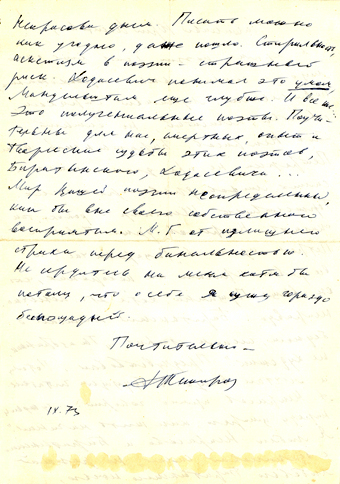 Некрасова днем. Писать можно
как угодно, даже пошло. Стерильность,
аскетизм в поэзии – страшный
риск. Ходасевич понимал это умом
Мандельштам, еще глубже. И все же
Это полугениальные поэты. Поучи-
тельны для нас, смертных, опыт и
творческие судьбы этих поэтов,
Баратынского, Ходасевича...
Мир Вашей поэзии неопределенный,
как бы вне своего собственного
восприятия. М. б. от излишнего
страха перед банальностью.
Не сердитесь на меня хотя бы
потому, что о себе я сужу гораздо
беспощадней.
Почтительно –
IX. 73